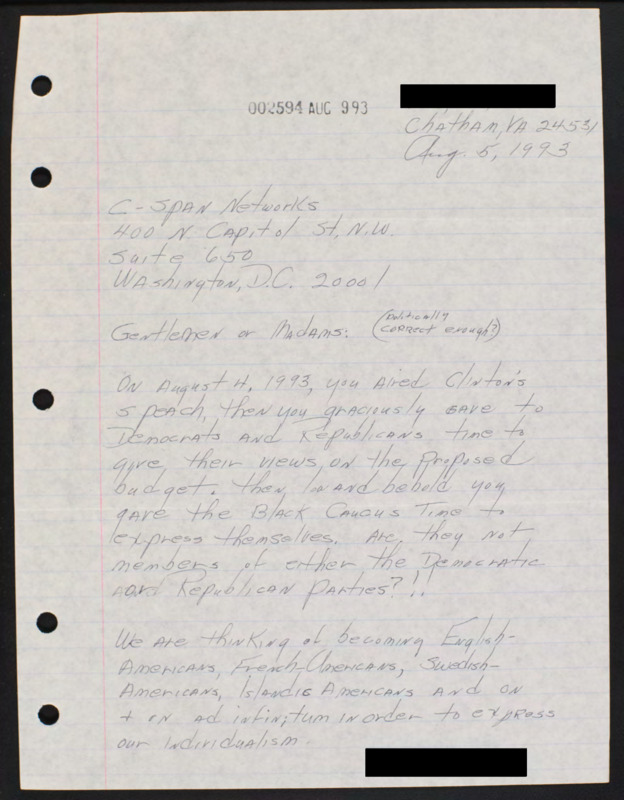 002594 AUG 993
Chatham, VA 24531
Aug. 5, 1993
C-SPAN Networks
400 N Capitol St, N.W.
Suite 650
Washington, D.C. 20001
Gentlemen or Madams: (Politically correct enough?)
On August 4, 1993, you aired Clinton's
speach, then you graciously gave to
Democrats and Republicans time to
give their views on the proposed
budget. Then, lo and behold you
gave the Black Caucus Time to
express themselves. Are they not
members of either the Democratic
and Republican Parties?!!
We are thinking of becoming English-
Americans, French-Americans, Swedish-
Americans, Islandic Americans and on
+ on ad infinitum in order to express
our individualism.